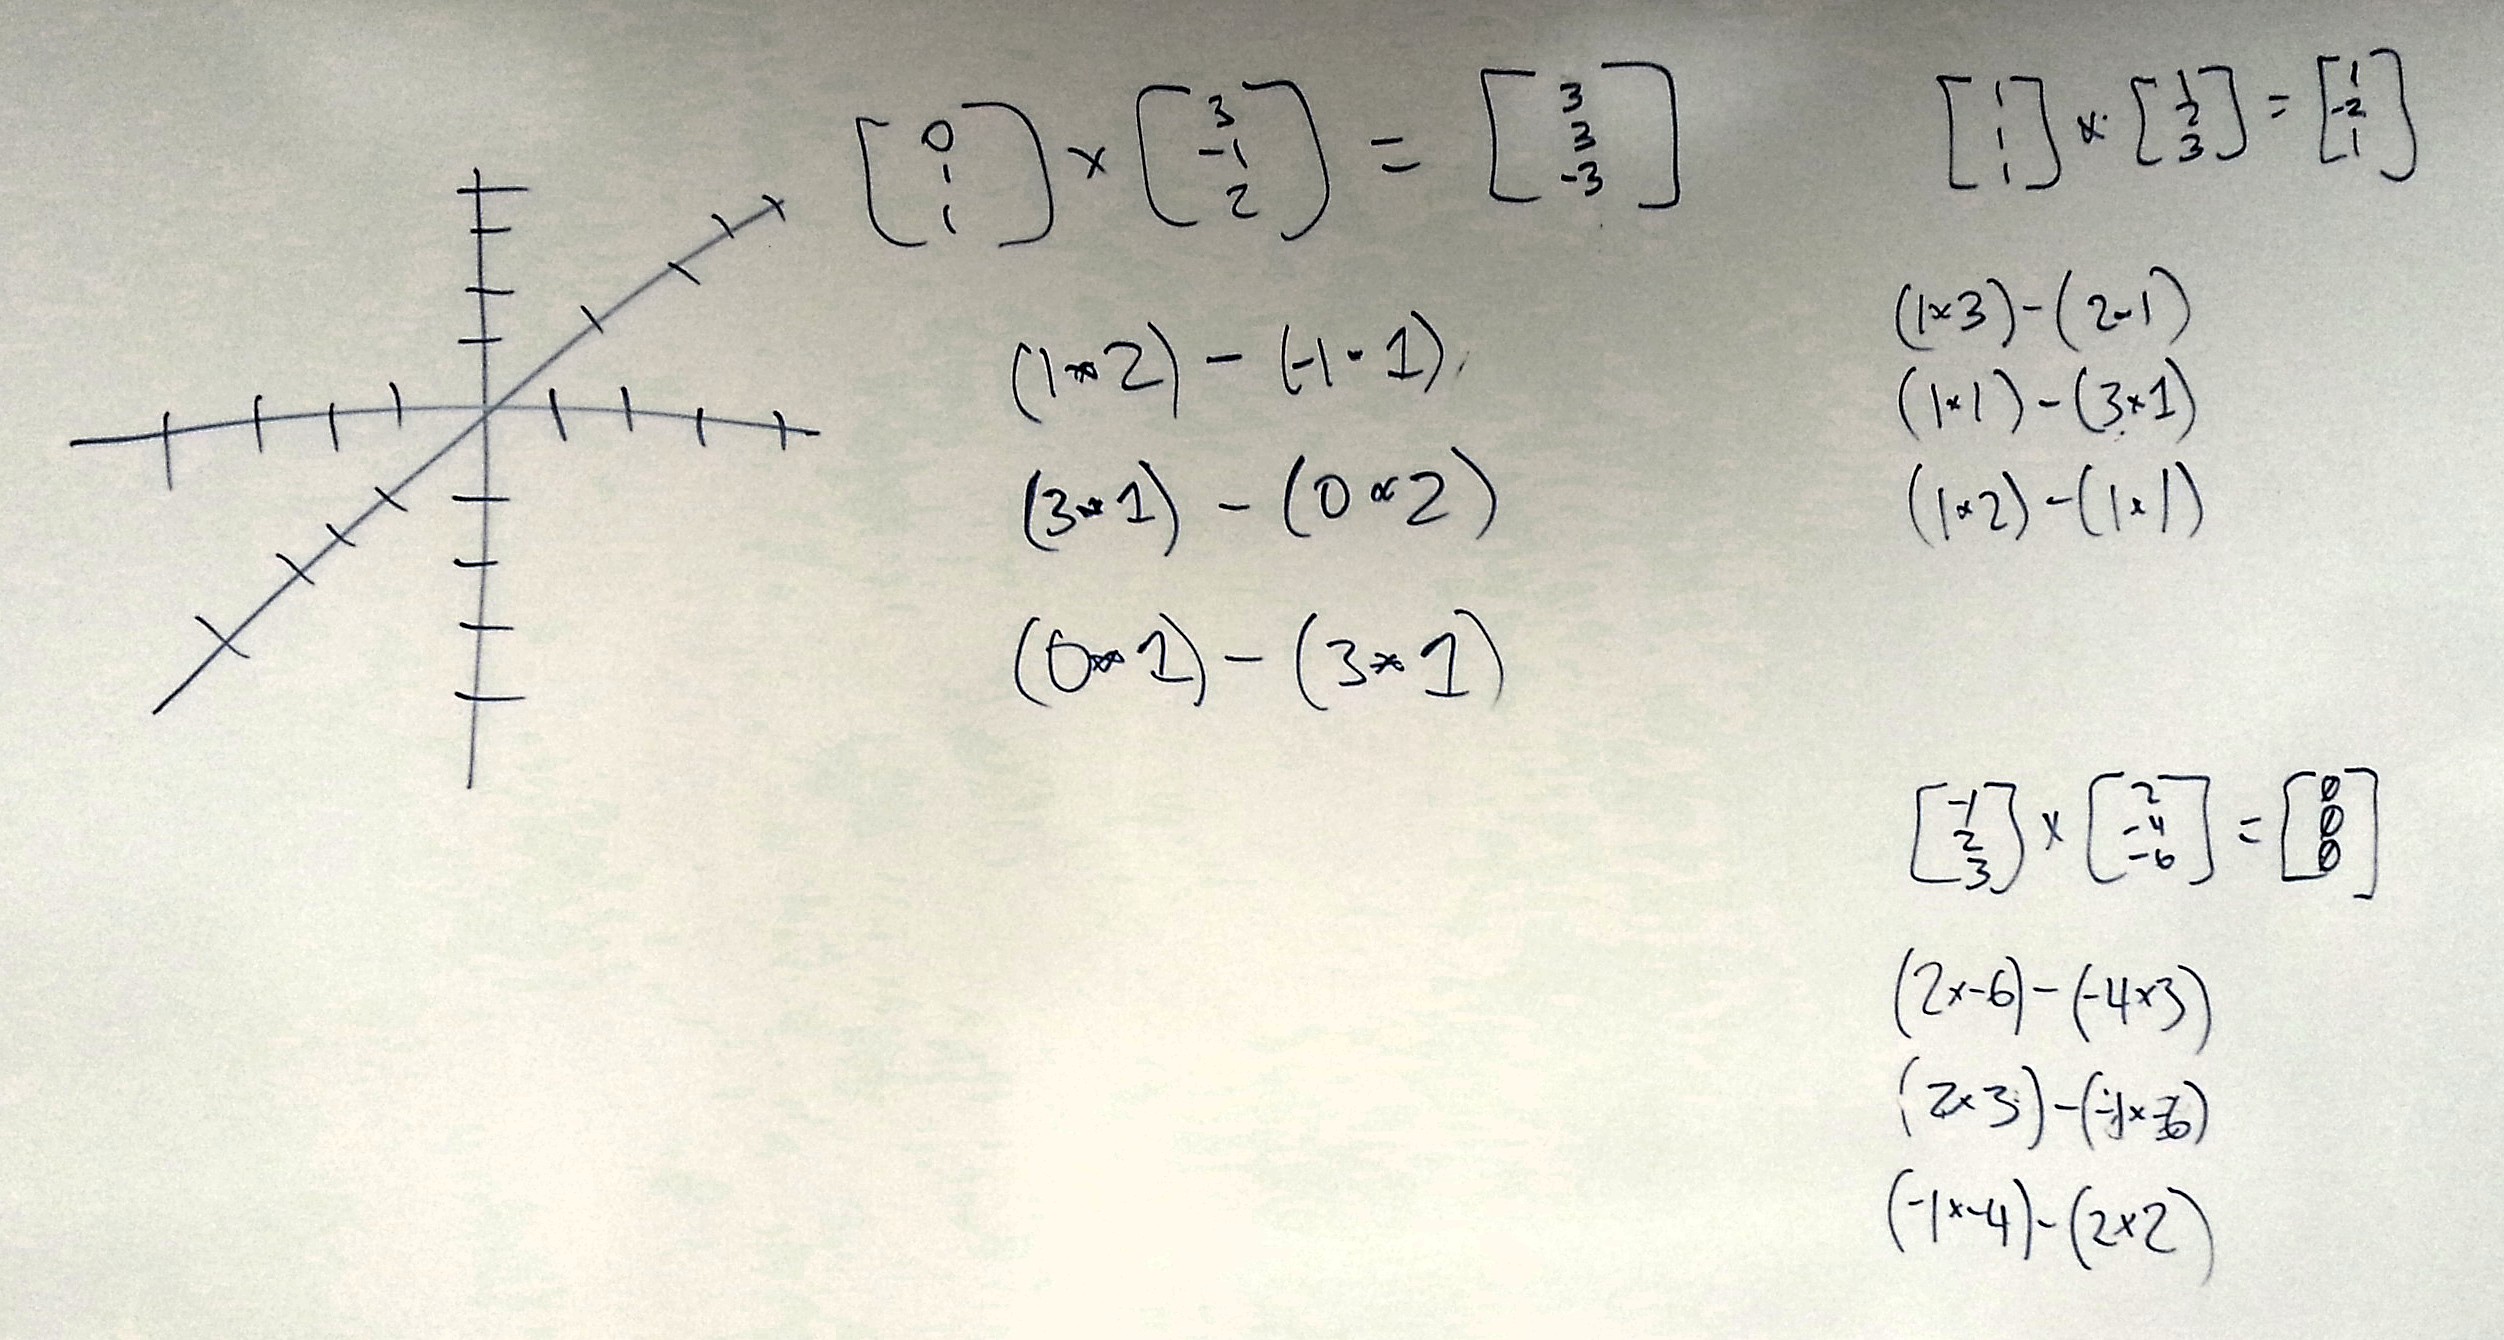 [0 1 1] × [3 -1 2] = [3 3 -3]
(1×2) - (-1·1)
(3×1) - (0×2)
(0×1) - (3×1)
[1 1 1] × [1 2 3] = [1 -2 1]
(1×3)-(2·1)
(1×1)-(3×1)
(1×2)-(1×1)
[-1 2 3] × [2 -4 -6] = [0 0 0]
(2×-6)-(-4×3)
(2×3)-(-1×-6)
(-1×-4)-(2×2)